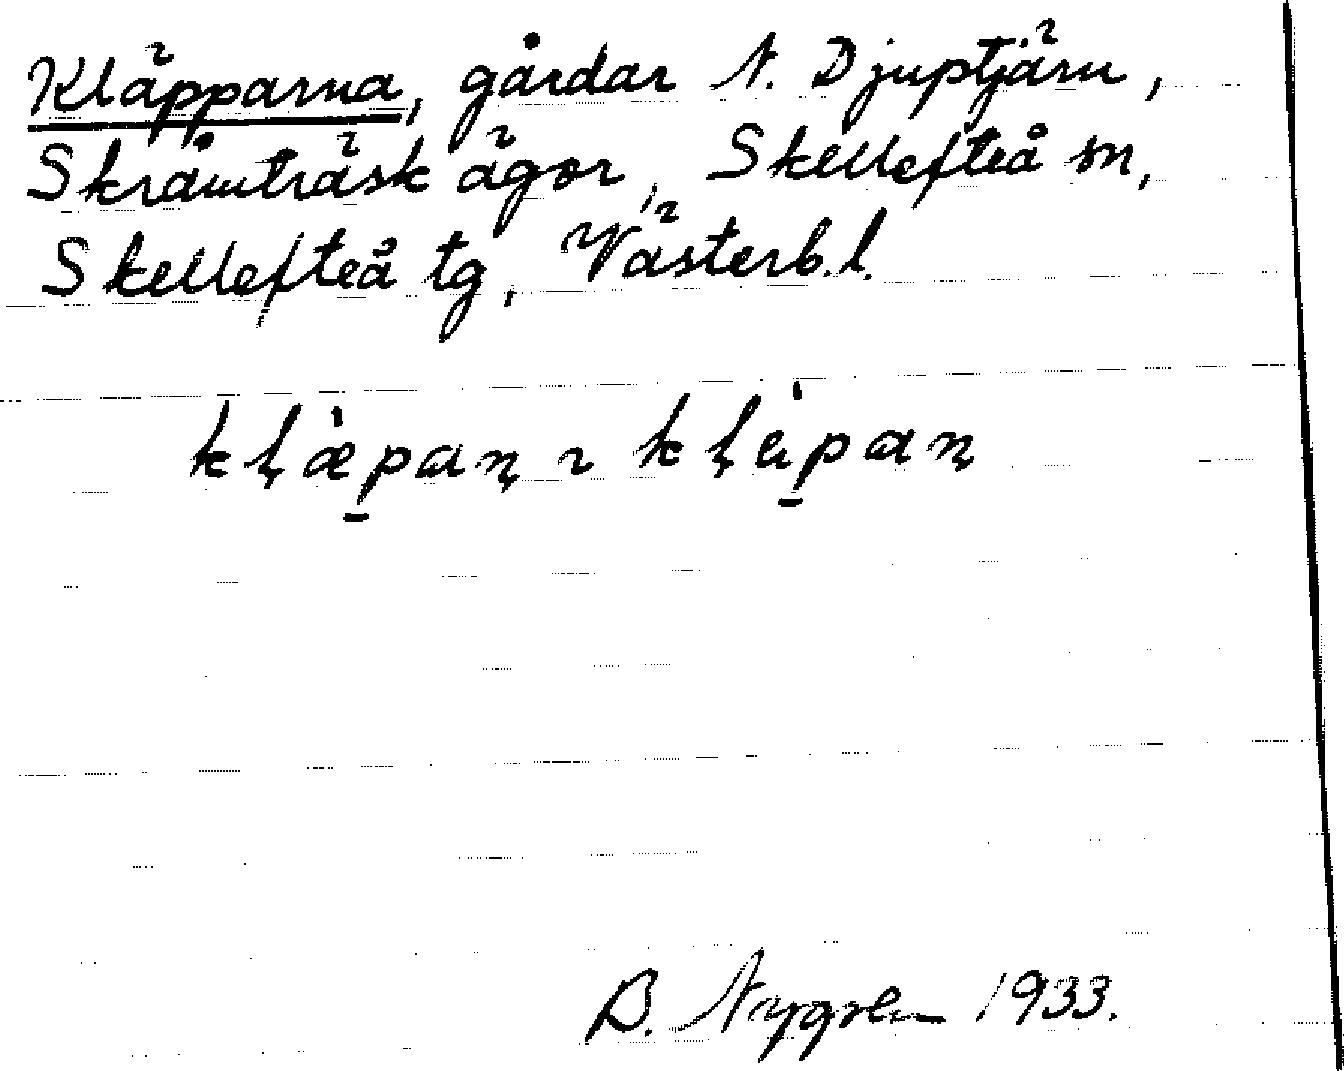 Kläpparna, gårdar N. Djuptjärn,
Skråmträsk ägor, Skellefteå sn,
Skellefteå tg, Västerb. l.
kļæ̀pan̨ ɿ kļàpan̨
B. Nygren 1933.